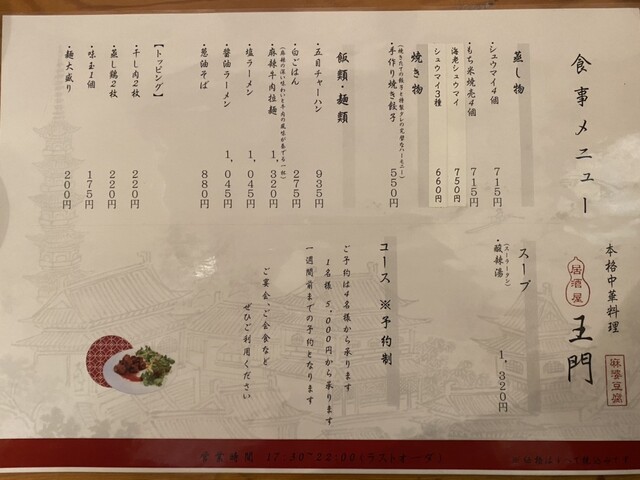 食事メニュー
本格中華料理
居酒屋
王門
麻婆豆腐
蒸し物
・シュウマイ4個 715円
・もち米焼売4個 715円
海老シュウマイ 750円
シュウマイ3種 660円
焼き物
(焼きたての餃子と特製タレの完璧なハーモニー)
・手作り焼き餃子 550円
飯類・麺類
・五目チャーハン 935円
・白ごはん 275円
(麻辣の深い味わいと牛肉の風味が奏でる一杯)
・麻辣牛肉拉麺 1,320円
・塩ラーメン 1,045円
・醤油ラーメン 1,045円
・葱油そば 880円
【トッピング】
・干し肉2枚 220円
・蒸し鶏2枚 220円
・味玉1個 175円
・麺大盛り 200円
スープ
(スーラータン)
・酸辣湯 1,320円
コース ※予約制
ご予約は4名様から承ります
1名様 5,000円から承ります
一週間前までの予約となります
ご宴会、ご会食など
ぜひご利用ください
営業時間 17:30~22:00(ラストオーダ